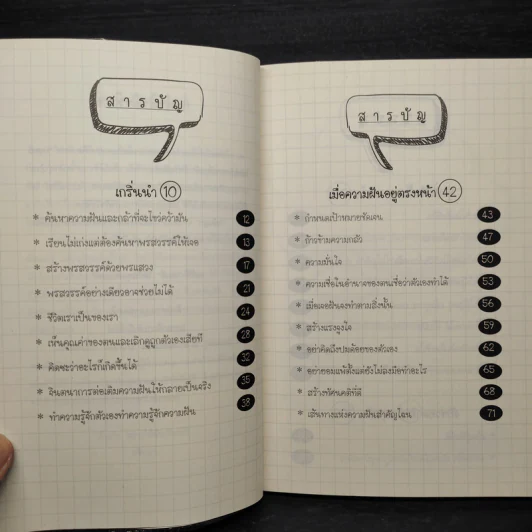 สารบัญ
เกริ่นนำ 10
* ค้นหาความฝันและกล้าที่จะไขว่คว้ามัน 12
* เรียนไม่เก่งแต่ต้องค้นหาพรสวรรค์ให้เจอ 13
* สร้างพรสวรรค์ด้วยพรแสวง 17
* พรสวรรค์อย่างเดียวอาจช่วยไม่ได้ 21
* ชีวิตเราเป็นของเรา 24
* เห็นคุณค่าของตนและเลิกดูถูกตัวเองเสียที 28
* คิดซะว่าอะไรก็เกิดขึ้นได้ 32
* จินตนาการต่อเติมความฝันให้กลายเป็นจริง 35
* ทำความรู้จักตัวเองทำความรู้จักความฝัน 38
สารบัญ
เมื่อความฝันอยู่ตรงหน้า 42
* กำหนดเป้าหมายชัดเจน 43
* ก้าวข้ามความกลัว 47
* ความมั่นใจ 50
* ความเชื่อในอำนาจของตนเชื่อว่าตัวเองทำได้ 53
* เมื่อเจอฝันจงทำตามสิ่งนั้น 56
* สร้างแรงจูงใจ 59
* อย่าคิดถึงปมด้อยของตัวเอง 62
* อย่ายอมแพ้ตั้งแต่ยังไม่ลงมือทำอะไร 65
* สร้างทัศนคติที่ดี 68
* เส้นทางแห่งความฝันสำคัญไฉน 71